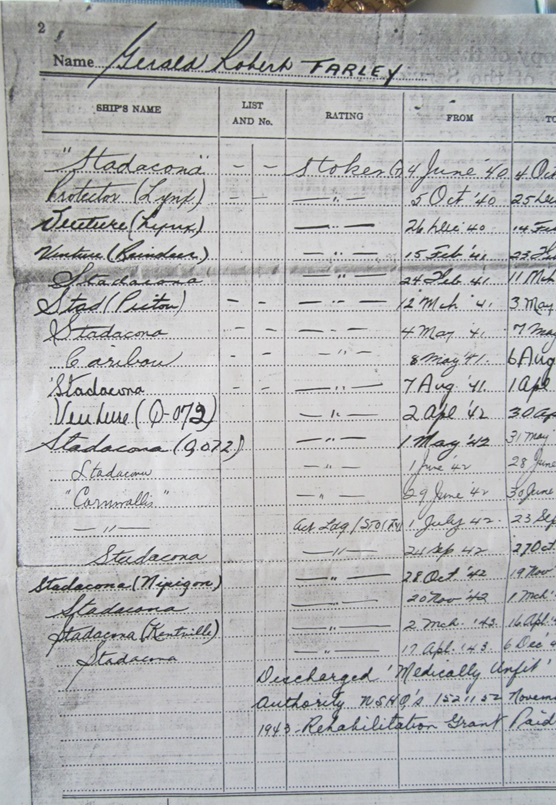 2
Name Gerald Robert FARLEY
SHIP'S NAME LIST AND No. RATING FROM TO
"Stadacona" - - Stoker 4 June '40 4 Oct
Protector (Lynx) - - —"— 5 Oct '40 25 Dec
Venture (Lynx) —"— 26 Dec '40 14 Feb
Venture (Reindeer) —"— 15 Feb '41 23 Feb
Stadacona —"— 24 Feb 41 11 Mch
Stad (Pictou) - - —"— 12 Mch '41 3 May
Stadacona - - —"— 4 May '41 7 May
Caribou - - —"— 8 May '41 6 Aug
Stadacona - - —"— 7 Aug '41 1 Apl
Venture (Q-072) —"— 2 Apl '42 30 Ap
Stadacona (Q072) —"— 1 May '42 31 May
Stadacona —"— 1 June '42 28 June
"Cornwallis" —"— 29 June '42 30 June
—"— Act Ldg/Sto 1 July '42 23 Sep
Stadacona —"— 24 Sep 42 27 Oct
Stadacona (Nipigon) —"— 28 Oct '42 19 Nov
Stadacona —"— 20 Nov '42 1 Mch
Stadacona (Kentville) —"— 2 Mch '43 16 Apl
Stadacona —"— 17 Apl '43 6 Dec 4
Discharged 'Medically Unfit'
Authority NSHQ's 15211 52 Novem
1943. Rehabilitation Grant Paid